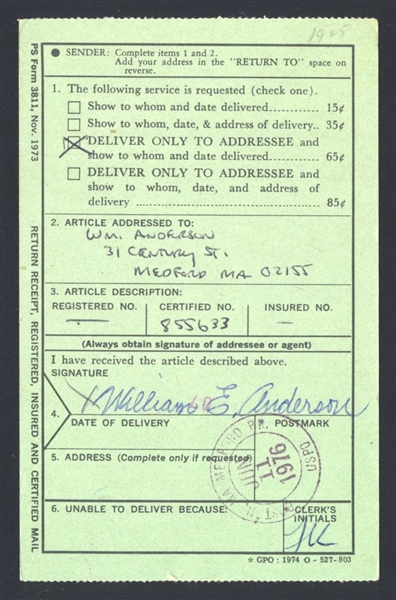 1925
PS Form 3811, Nov. 1973
RETURN RECEIPT, REGISTERED, INSURED AND CERTIFIED MAIL
● SENDER: Complete items 1 and 2.
Add your address in the "RETURN TO" space on
reverse.
1. The following service is requested (check one).
Show to whom and date delivered............ 15¢
Show to whom, date, & address of delivery.. 35¢
DELIVER ONLY TO ADDRESSEE and
show to whom and date delivered............ 65¢
DELIVER ONLY TO ADDRESSEE and
show to whom, date, and address of
delivery .................................... 85¢
2. ARTICLE ADDRESSED TO:
WM. ANDERSON
31 CENTURY ST.
MEDFORD MA 02155
3. ARTICLE DESCRIPTION:
REGISTERED NO. CERTIFIED NO. INSURED NO.
— 855633 —
(Always obtain signature of addressee or agent)
I have received the article described above.
SIGNATURE
X William E. Anderson
4.
DATE OF DELIVERY POSTMARK
JUN 11 1976
USPO
5. ADDRESS (Complete only if requested)
6. UNABLE TO DELIVER BECAUSE: CLERK'S
INITIALS
☆ GPO : 1974 O - 527-803